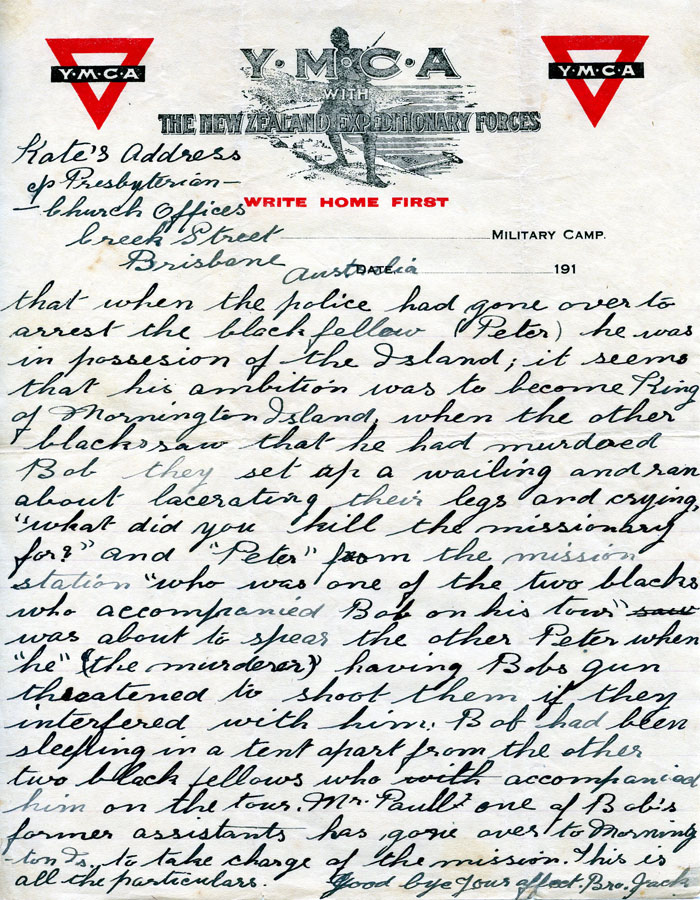 Y·M·C·A
Y·M·C·A
Y·M·C·A
WITH
THE NEW ZEALAND EXPEDITIONARY FORCES
Kate's Address
c/o Presbyterian -
- Church Offices
WRITE HOME FIRST
Creek Street
MILITARY CAMP.
Brisbane
Australia
DATE 191
that when the police had gone over to
arrest the blackfellow (Peter) he was
in possesion of the Island; it seems
that his ambition was to become King
of Mornington Island, when the other
blacks saw that he had murdered
Bob they set up a wailing and ran
about lacerating their legs and crying,
"what did you kill the missionary
for?" and "Peter" from the mission
station "who was one of the two blacks
who accompanied Bob on his tour" saw
was about to spear the other Peter when
"he" (the murderer) having Bobs gun
threatened to shoot them if they
interfered with him. Bob had been
sleeping in a tent apart from the other
two black fellows who with accompanied
him on the tour. Mr. Paull? one of Bob's
former assistants has gone over to Morning
-ton Is. to take charge of the mission. This is
all the particulars. Good bye Your affect. Bro. Jack